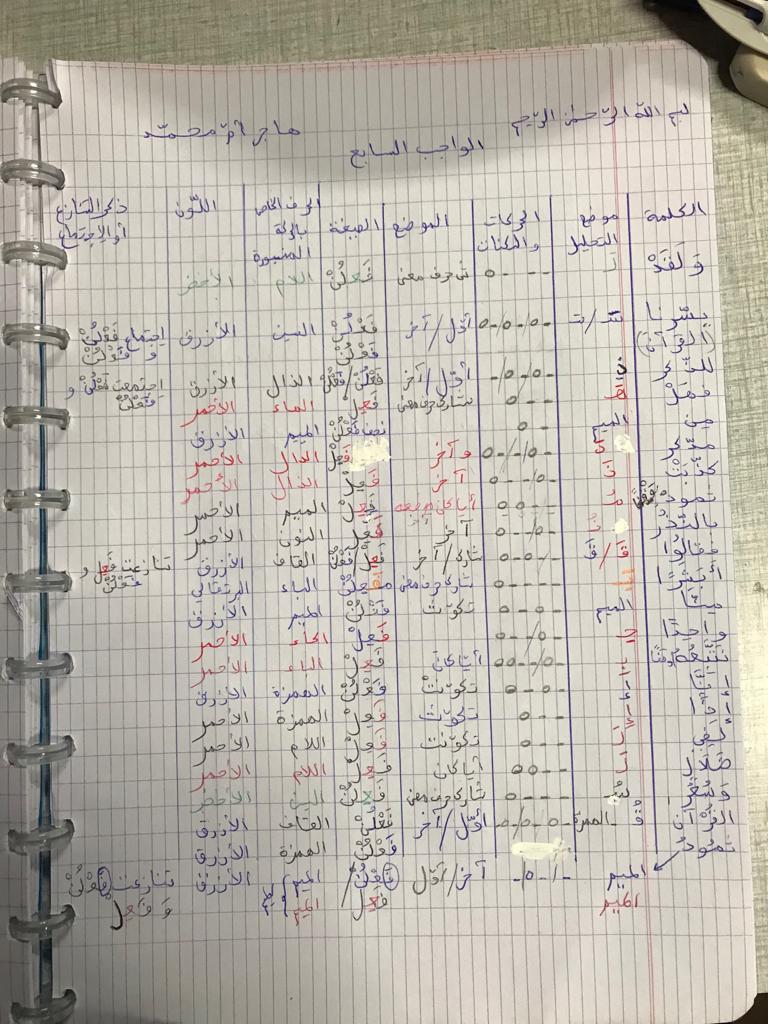 بسم الله الرّحمٰن الرّحيم هاجر أمّ محمّد
الواجب السابع
الكلمة موضع التحليل الحركات والسكنات الموضع الصيغة الحرف الخاص بالحركة المنسوبة اللّون ذكر التنازع أو الاجتماع
وَلَقَدْ ---o حرف معنى فَعَلُنْ اللام الأخضر
يسّرنا (القرآن) -o/-o-o أوّل/آخر فَعْلُنْ فَعْلُنْ السين الأزرق اجتماع فَعْلُنْ و فَعْلُنْ
للذّكر -o/-o- أوّل/آخر فَعْلُنْ/فَعْلُنْ الذال الأزرق اجتمعت فَعْلُنْ و فَعْلُنْ
فهل --o تشارك حرف معنى فَعِلْ الهاء الأحمر
مِن الميم -o نصف فَعْلُنْ الميم الأزرق
مدّكر و آخر فَعِلْ الدال الأحمر
كذّبت آخر فَعِلْ الذال الأحمر
ثمود فَعِلْ الميم الأحمر
بالنّذر آخر فَعِلْ النون الأحمر
فقالوا قَا/فَ تشارك/آخر فَعِلْ/فَعْلُنْ القاف الأزرق تنازعت فَعِلْ و فَعْلُنْ
أبشرًا تشارك حرف معنى الباء البرتقالي
منّا الميم تكوّنت فَعْلُنْ الميم الأزرق
واحدًا فَعِلْ الحاء الأحمر
نتّبعه أيّا كان فَعِلْ الباء الأحمر
إنّا تكوّنت فَعْلُنْ الهمزة الأزرق
إذًا تكوّنت فَعِلْ الهمزة الأحمر
لَفِي تكوّنت فَعِلْ اللام الأحمر
ضلال أيّا كان فَعِلْ اللام الأحمر
وسُعُر تشارك حرف معنى فَعَلُنْ السين الأخضر
القرآن قُ - الهمزة أوّل/آخر فَعْلُنْ القاف الأزرق
فَعْلُنْ الهمزة الأزرق
ثمودُ الميم آخر/أوّل فَعْلُنْ/ الميم/ الأزرق تنازعت فَعْلُنْ
الميم فَعِلْ الميم و فَعِلْ